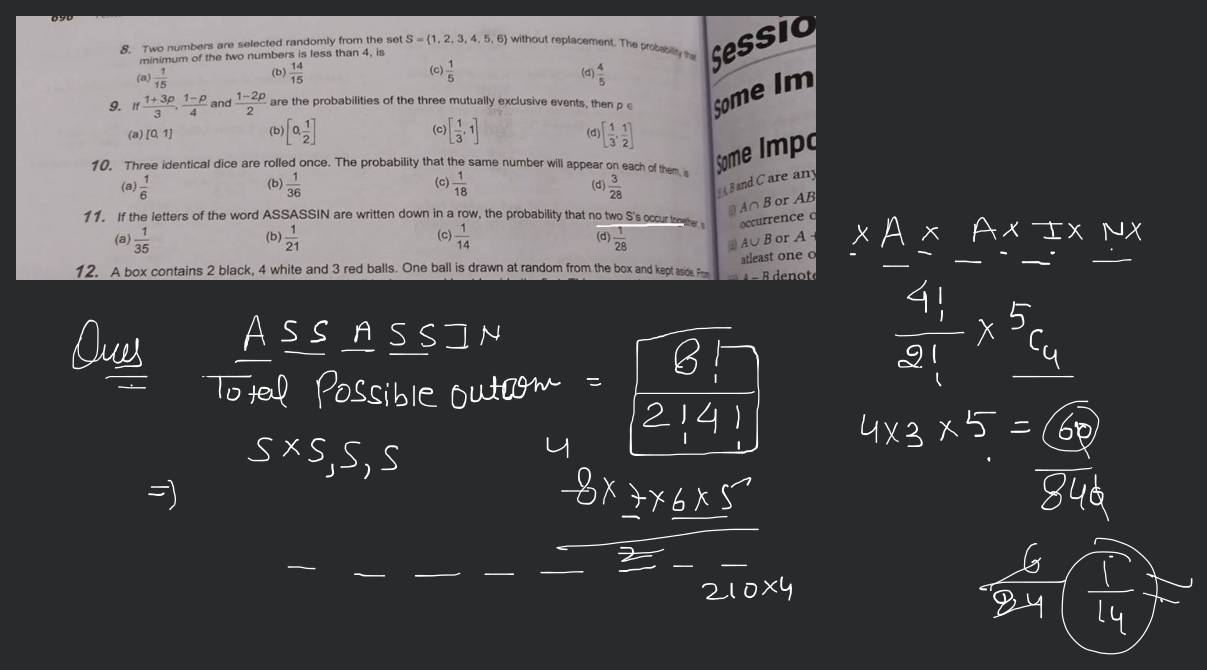 8. Two numbers are selected randomly from the set S = {1, 2, 3, 4, 5, 6} without replacement. The probability that
minimum of the two numbers is less than 4, is
(a) 1/15 (b) 14/15 (c) 1/5 (d) 4/5
9. If 1+3p/3, 1-p/4 and 1-2p/2 are the probabilities of the three mutually exclusive events, then p ∈
(a) [0, 1] (b) [0, 1/2] (c) [1/3, 1] (d) [1/3, 1/2]
10. Three identical dice are rolled once. The probability that the same number will appear on each of them, is
(a) 1/6 (b) 1/36 (c) 1/18 (d) 3/28
11. If the letters of the word ASSASSIN are written down in a row, the probability that no two S's occur together is
(a) 1/35 (b) 1/21 (c) 1/14 (d) 1/28
12. A box contains 2 black, 4 white and 3 red balls. One ball is drawn at random from the box and kept aside. From
Sessio
Some Im
Some Impo
B and C are any
A∩B or AB
occurrence o
A∪B or A +
atleast one o
A – B denote
Ques
A S S A S S I N
Total Possible outcom =
8!
2! 4!
S × S, S, S
4
⇒ 8 × 7 × 6 × 5
2
210×4
× A × A × I × N ×
4!/2! × 5C4
4×3 ×5 = 60
840
6/84
1/14